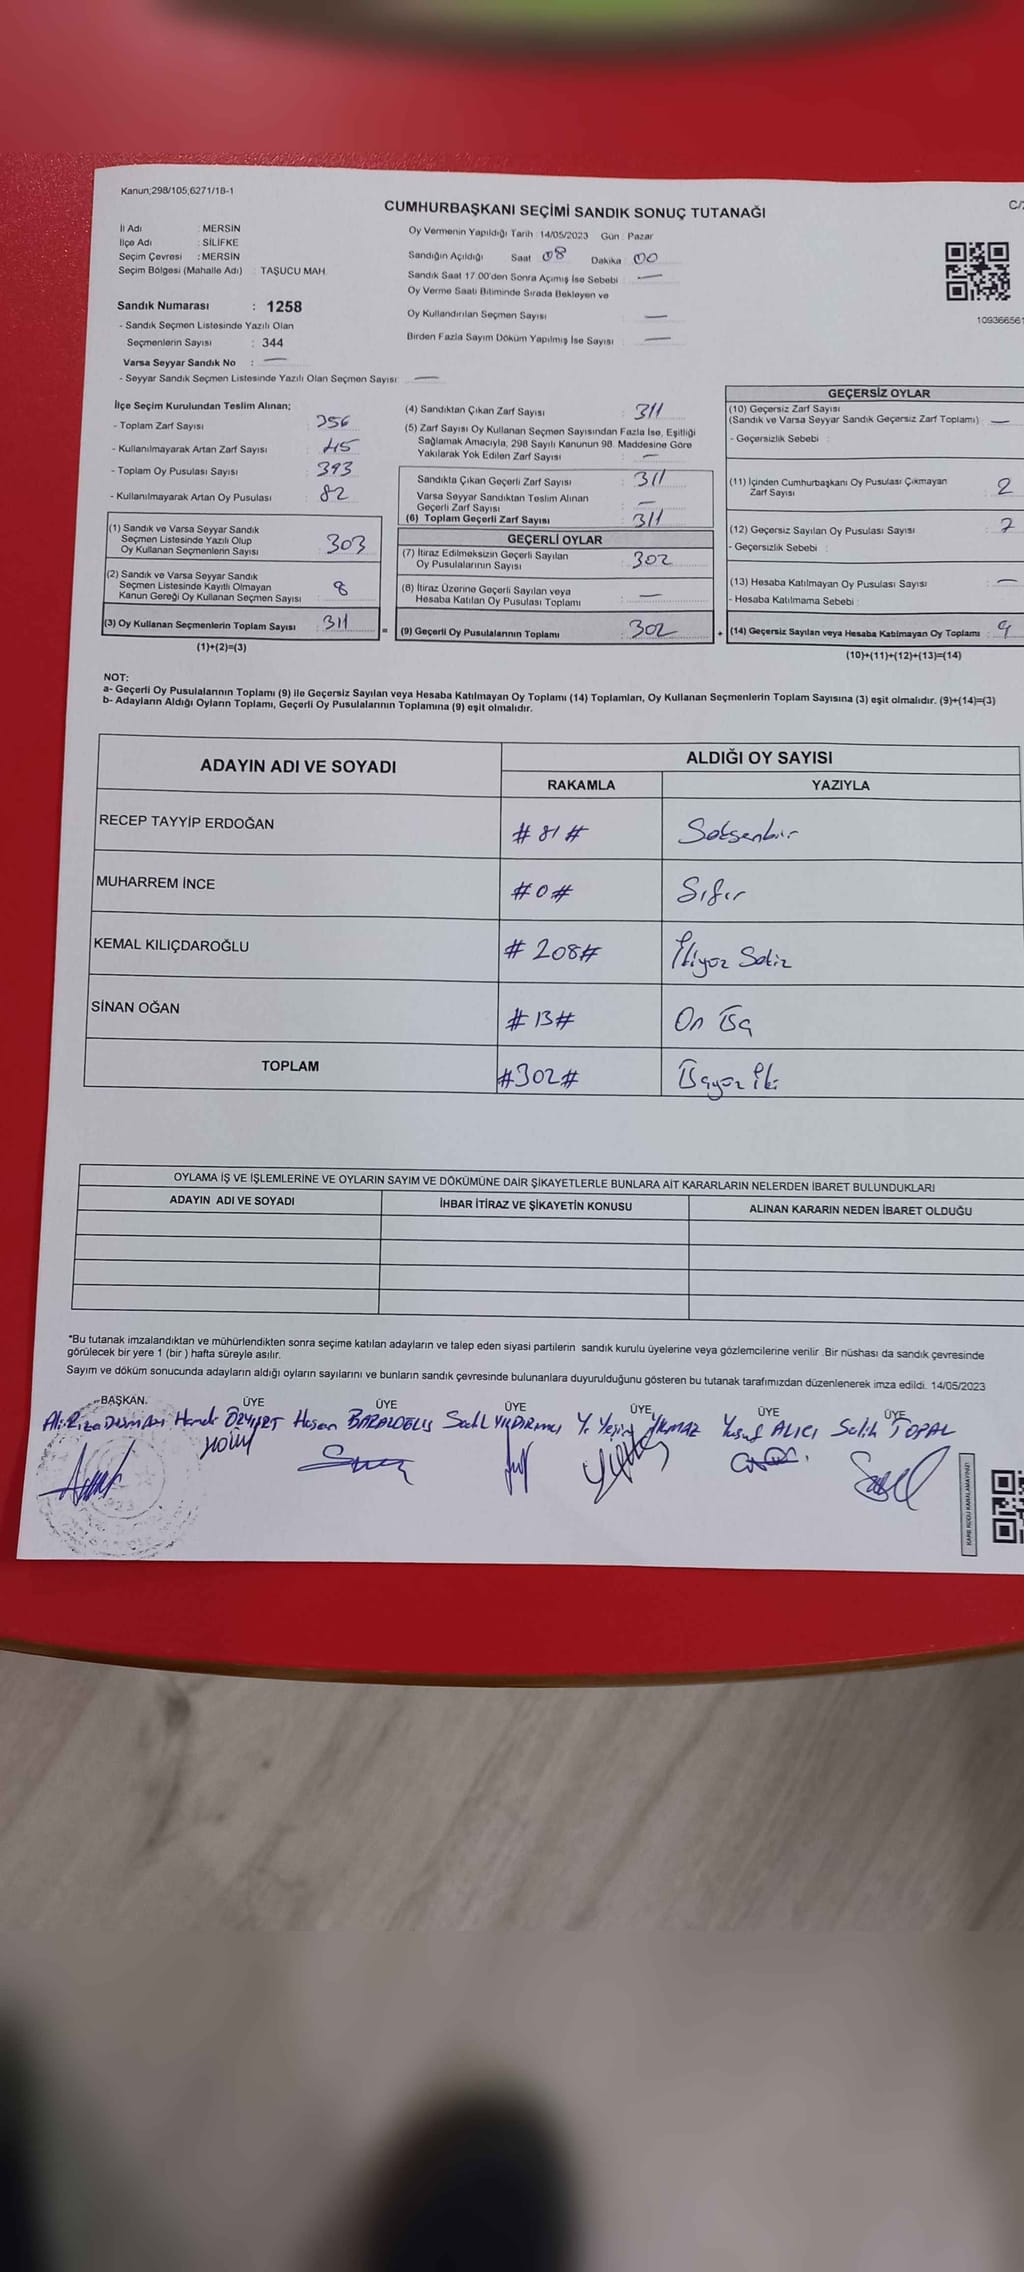 Kanun;298/105,6271/18-1
CUMHURBAŞKANI SEÇİMİ SANDIK SONUÇ TUTANAĞI
İl Adı : MERSİN
İlçe Adı : SİLİFKE
Seçim Çevresi : MERSİN
Seçim Bölgesi (Mahalle Adı) : TAŞUCU MAH.
Sandık Numarası : 1258
- Sandık Seçmen Listesinde Yazılı Olan
Seçmenlerin Sayısı : 344
Varsa Seyyar Sandık No : —
- Seyyar Sandık Seçmen Listesinde Yazılı Olan Seçmen Sayısı : —
Oy Vermenin Yapıldığı Tarih : 14/05/2023 Gün : Pazar
Sandığın Açıldığı Saat : 08 Dakika : 00
Sandık Saat 17.00'den Sonra Açımış İse Sebebi : —
Oy Verme Saati Bitiminde Sırada Bekleyen ve
Oy Kullandırılan Seçmen Sayısı : —
Birden Fazla Sayım Döküm Yapılmış İse Sayısı : —
109366561
İlçe Seçim Kurulundan Teslim Alınan;
- Toplam Zarf Sayısı : 356
- Kullanılmayarak Artan Zarf Sayısı : 45
- Toplam Oy Pusulası Sayısı : 393
- Kullanılmayarak Artan Oy Pusulası : 82
(1) Sandık ve Varsa Seyyar Sandık
Seçmen Listesinde Yazılı Olup
Oy Kullanan Seçmenlerin Sayısı : 303
(2) Sandık ve Varsa Seyyar Sandık
Seçmen Listesinde Kayıtlı Olmayan
Kanun Gereği Oy Kullanan Seçmen Sayısı : 8
(3) Oy Kullanan Seçmenlerin Toplam Sayısı : 311
(1)+(2)=(3)
(4) Sandıktan Çıkan Zarf Sayısı : 311
(5) Zarf Sayısı Oy Kullanan Seçmen Sayısından Fazla İse, Eşitliği
Sağlamak Amacıyla, 298 Sayılı Kanunun 98. Maddesine Göre
Yakılarak Yok Edilen Zarf Sayısı : —
Sandıkta Çıkan Geçerli Zarf Sayısı : 311
Varsa Seyyar Sandıktan Teslim Alınan
Geçerli Zarf Sayısı : —
(6) Toplam Geçerli Zarf Sayısı : 311
GEÇERLİ OYLAR
(7) İtiraz Edilmeksizin Geçerli Sayılan
Oy Pusulalarının Sayısı : 302
(8) İtiraz Üzerine Geçerli Sayılan veya
Hesaba Katılan Oy Pusulası Toplamı : —
= (9) Geçerli Oy Pusulalarının Toplamı : 302
GEÇERSİZ OYLAR
(10) Geçersiz Zarf Sayısı
(Sandık ve Varsa Seyyar Sandık Geçersiz Zarf Toplamı) : —
- Geçersizlik Sebebi :
(11) İçinden Cumhurbaşkanı Oy Pusulası Çıkmayan
Zarf Sayısı : 2
(12) Geçersiz Sayılan Oy Pusulası Sayısı : 7
- Geçersizlik Sebebi :
(13) Hesaba Katılmayan Oy Pusulası Sayısı : —
- Hesaba Katılmama Sebebi :
+ (14) Geçersiz Sayılan veya Hesaba Katılmayan Oy Toplamı : 9
(10)+(11)+(12)+(13)=(14)
NOT:
a- Geçerli Oy Pusulalarının Toplamı (9) ile Geçersiz Sayılan veya Hesaba Katılmayan Oy Toplamı (14) Toplamları, Oy Kullanan Seçmenlerin Toplam Sayısına (3) eşit olmalıdır. (9)+(14)=(3)
b- Adayların Aldığı Oyların Toplamı, Geçerli Oy Pusulalarının Toplamına (9) eşit olmalıdır.
ADAYIN ADI VE SOYADI ALDIĞI OY SAYISI
RAKAMLA YAZIYLA
RECEP TAYYİP ERDOĞAN #81# Seksenbir
MUHARREM İNCE #0# Sıfır
KEMAL KILIÇDAROĞLU #208# İkiyüz Sekiz
SİNAN OĞAN #13# On Üç
TOPLAM #302# Üçyüz İki
OYLAMA İŞ VE İŞLEMLERİNE VE OYLARIN SAYIM VE DÖKÜMÜNE DAİR ŞİKAYETLERLE BUNLARA AİT KARARLARIN NELERDEN İBARET BULUNDUKLARI
ADAYIN ADI VE SOYADI İHBAR İTİRAZ VE ŞİKAYETİN KONUSU ALINAN KARARIN NEDEN İBARET OLDUĞU
*Bu tutanak imzalandıktan ve mühürlendikten sonra seçime katılan adayların ve talep eden siyasi partilerin sandık kurulu üyelerine veya gözlemcilerine verilir .Bir nüshası da sandık çevresinde
görülecek bir yere 1 (bir ) hafta süreyle asılır.
Sayım ve döküm sonucunda adayların aldığı oyların sayılarını ve bunların sandık çevresinde bulunanlara duyurulduğunu gösteren bu tutanak tarafımızdan düzenlenerek imza edildi. 14/05/2023
BAŞKAN. ÜYE ÜYE ÜYE ÜYE ÜYE ÜYE
Ali Rıza Hasan YILDIRIM YILMAZ Yusuf ALICI Salih TOPAL